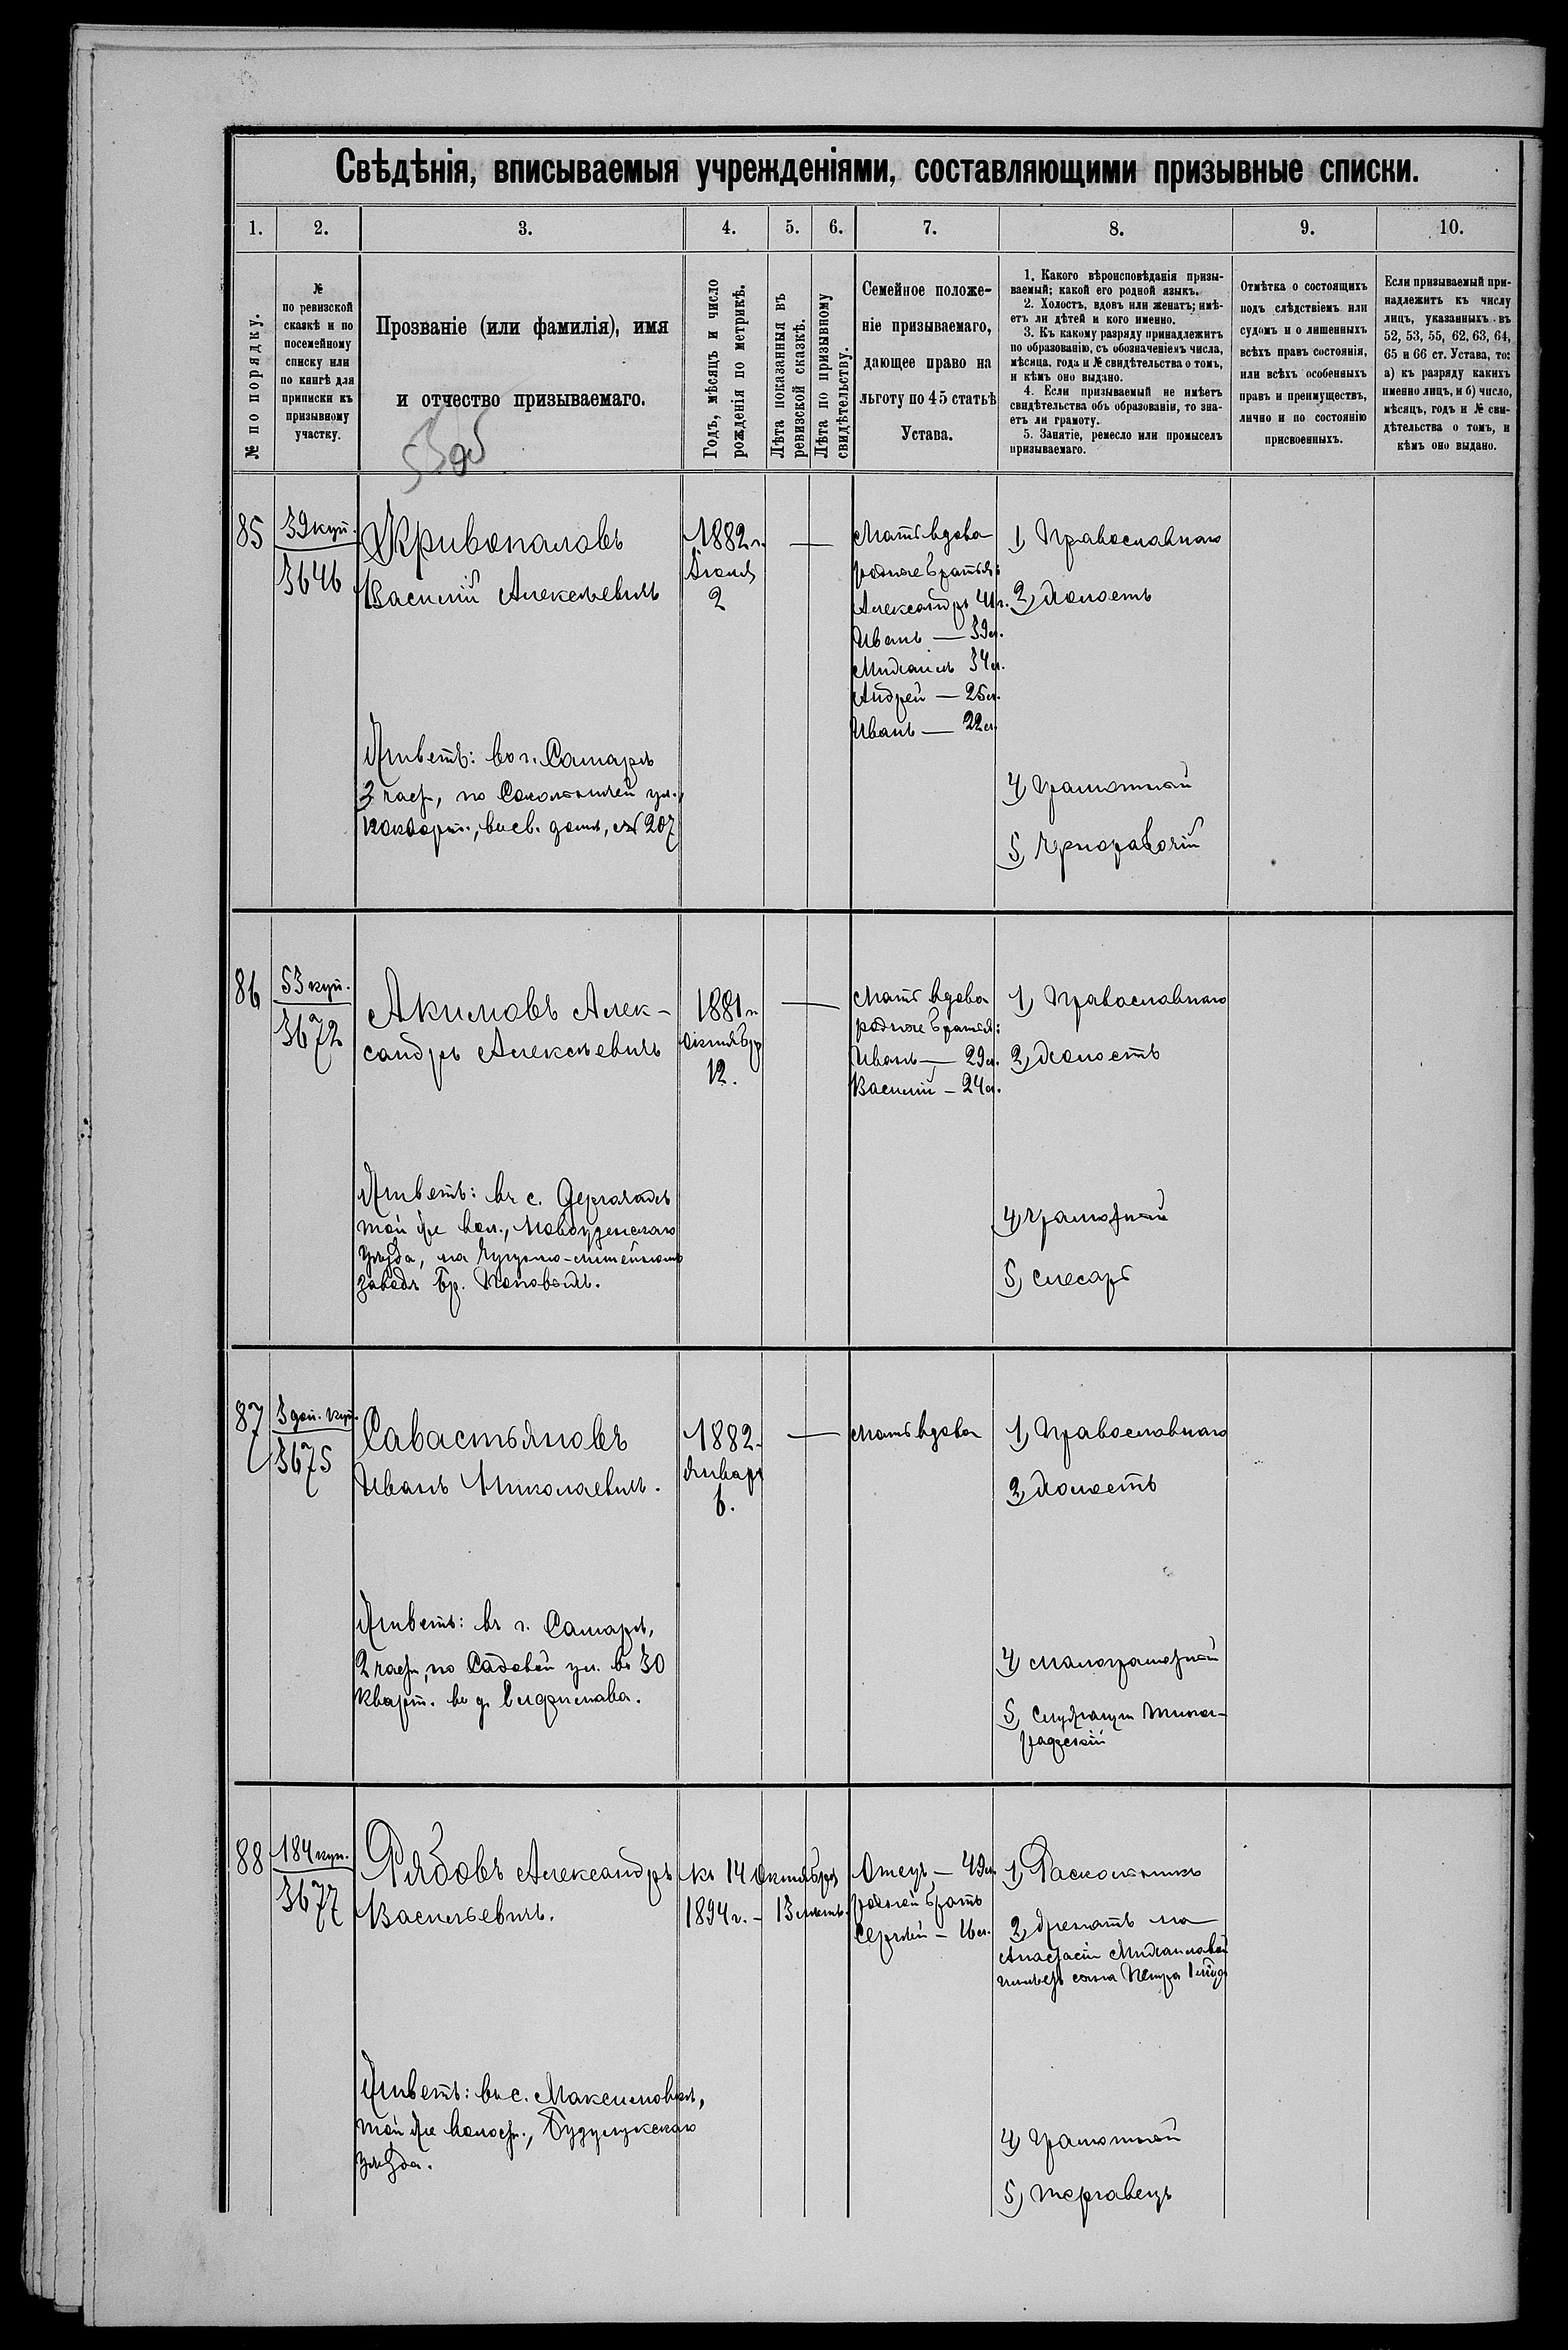 Свѣдѣнія, вписываемыя учрежденіями, составляющими призывные списки.
1. 2. 3. 4. 5. 6. 7. 8. 9. 10.
№ по порядку.
№
по ревизской
сказкѣ и по
посемейному
списку или
по книгѣ для
приписки къ
призывному
участку.
Прозваніе (или фамилія), имя
и отчество призываемаго.
Годъ, мѣсяцъ и число
рожденія по метрикѣ.
Лѣта показанныя въ
ревизской сказкѣ.
Лѣта по призывному
свидѣтельству.
Семейное положе-
ніе призываемаго,
дающее право на
льготу по 45 статьѣ
Устава.
1. Какого вѣроисповѣданія призы-
ваемый; какой его родной языкъ.
2. Холостъ, вдовъ или женатъ; имѣ-
етъ ли дѣтей и кого именно.
3. Къ какому разряду принадлежитъ
по образованію, съ обозначеніемъ числа,
мѣсяца, года и № свидѣтельства о томъ,
и кѣмъ оно выдано.
4. Если призываемый не имѣетъ
свидѣтельства объ образованіи, то зна-
етъ ли грамоту.
5. Занятіе, ремесло или промыселъ
призываемаго.
Отмѣтка о состоящихъ
подъ слѣдствіемъ или
судомъ и о лишенныхъ
всѣхъ правъ состоянія,
или всѣхъ особенныхъ
правъ и преимуществъ,
лично и по состоянію
присвоенныхъ.
Если призываемый при-
надлежитъ къ числу
лицъ, указанныхъ въ
52, 53, 55, 62, 63, 64,
65 и 66 ст. Устава, то:
а) къ разряду какихъ
именно лицъ, и б) число,
мѣсяцъ, годъ и № сви-
дѣтельства о томъ, и
кѣмъ оно выдано.
85
39 куп.
3646
Кривопаловъ
Василій Алексѣевичъ
Живетъ: въ г. Самарѣ
3 част, по ул.,
въ св. домѣ, № 207
1882 г.
2
Мать вдова
родные братья:
Александръ 41 г.
Иванъ — 39 л.
Михаилъ 34 л.
Андрей — 25 л.
Иванъ — 22 л.
1) Православнаго
2) холостъ
4) грамотный
5) чернорабочій
86
53 куп.
3672
Акимовъ Алек-
сандръ Алексѣевичъ
Живетъ: въ с. Дергачахъ
той же вол., Новоузенскаго
уѣзда, на чугунно-литейномъ
заводѣ бр.
1881 г.
октябр
12.
Мать вдова
родные братья:
Иванъ — 29 л.
Василій — 24 л.
1) Православнаго
2) холостъ
4) грамотный
5) слесарь
87
3 доп. куп.
3675
Савастьяновъ
Иванъ Николаевичъ.
Живетъ: въ г. Самарѣ,
2 част, по Садовой ул. въ 30
кварт. въ д.
1882.
январ
6.
Мать вдова
1) Православнаго
2) холостъ
4) малограмотный
5)
88
184 куп.
3677
Рябовъ Александръ
Васильевичъ.
Живетъ: въ с. Максимовкѣ,
той же волост., Бузулукскаго
уѣзда.
къ 14 Октября
1894 г. — 13 лѣтъ.
Отецъ — 49 л.
родной братъ
Сергѣй — 16 л.
1) Раскольникъ
2) женатъ на
Анастасіи Михайловой
имѣетъ сына Петра 1 год
4) грамотный
5) торговецъ